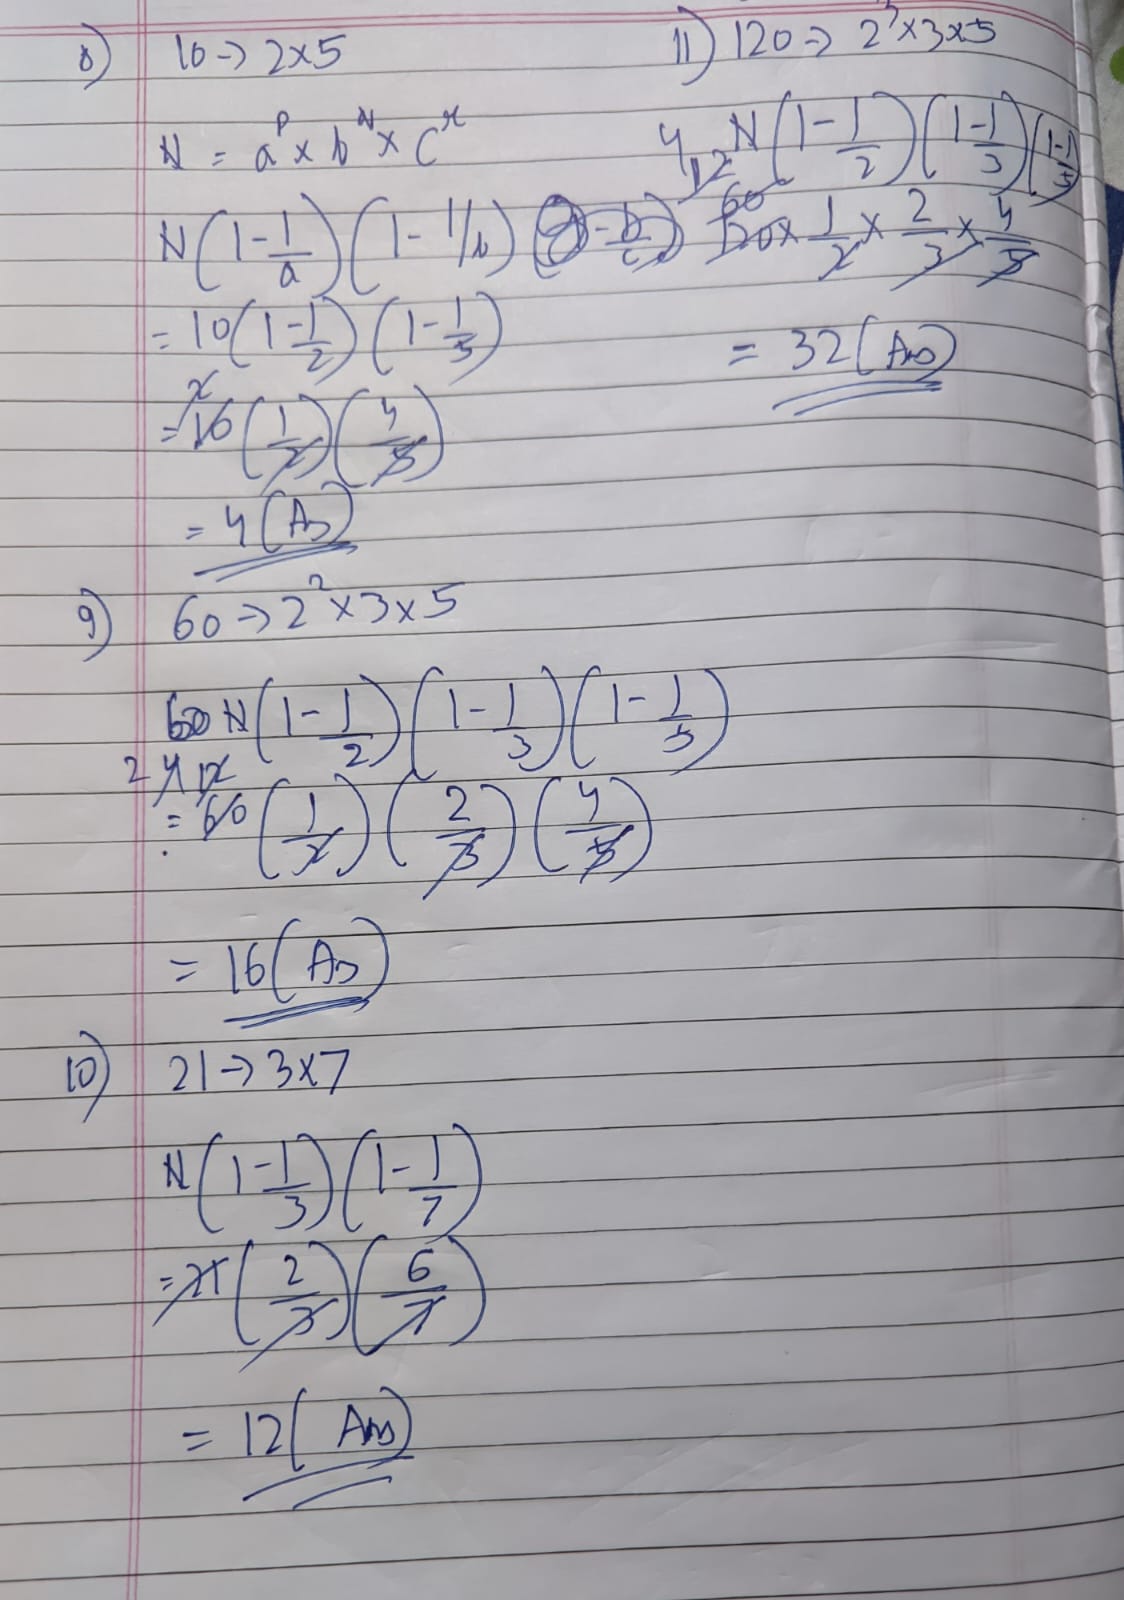 8) 10 → 2×5
N = a^p × b^q × c^r
N(1-1/a)(1-1/b)
= 10(1-1/2)(1-1/5)
= 10(1/2)(4/5)
= 4 (Ans)
9) 60 → 2^2×3×5
60 N(1-1/2)(1-1/3)(1-1/5)
2 4 12
= 60(1/2)(2/3)(4/5)
= 16 (Ans)
10) 21 → 3×7
N(1-1/3)(1-1/7)
= 21(2/3)(6/7)
= 12 (Ans)
11) 120 → 2^3×3×5
N(1-1/2)(1-1/3)(1-1/5)
4 12 60
120×1/2×2/3×4/5
= 32 (Ans)